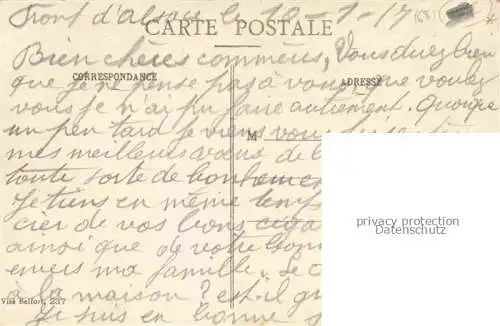 Front d'alsace le 10-1-17 (68)
CARTE POSTALE
Bien chères commères, Vous direz bien
CORRESPONDANCE
ADRESSE
que je ne pense pas à vous, que voulez
vous je n'ai pu faire autrement. Quoique
un peu tard je viens vous
M
mes meilleurs vœux de
toute sorte de bonheur
Je tiens en même temps
cier de vos bons
ainsi que de votre
envers ma famille.
à la maison? est-il
Visé Belfort, 237
Je suis en bonne
privacy protection
www.oldthing.de